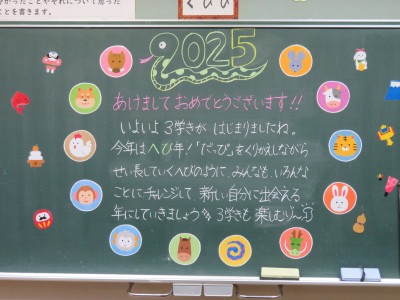 分かったことやそれについて思った
ことを書きます。
くらし
2025
あけましておめでとうございます!!
いよいよ3学きが はじまりましたね。
今年はへび年!「だっぴ」をくりかえしながら
せい長していくへびのように、みんなも、いろんな
ことにチャレンジして 新しい自分に出会える
年にしていきましょう 3学きも 楽しむゾ〜